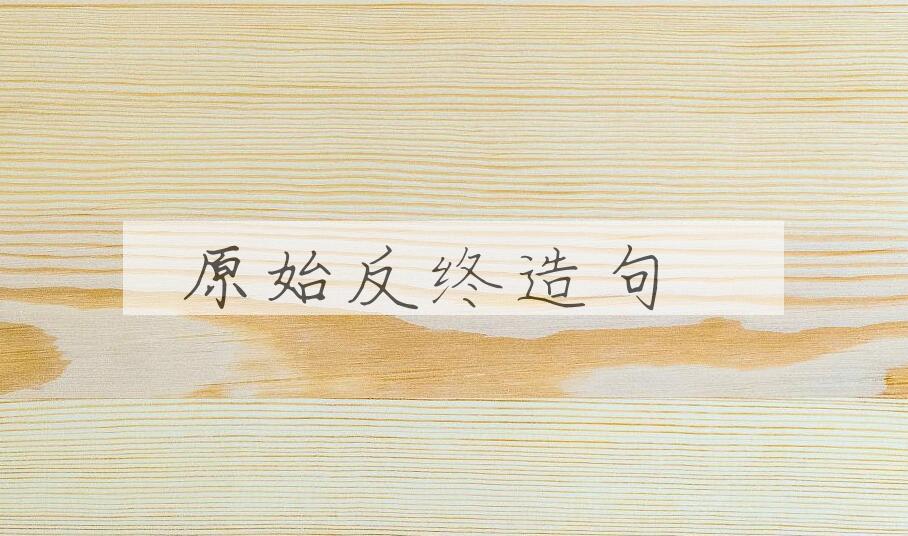 原始反终造句